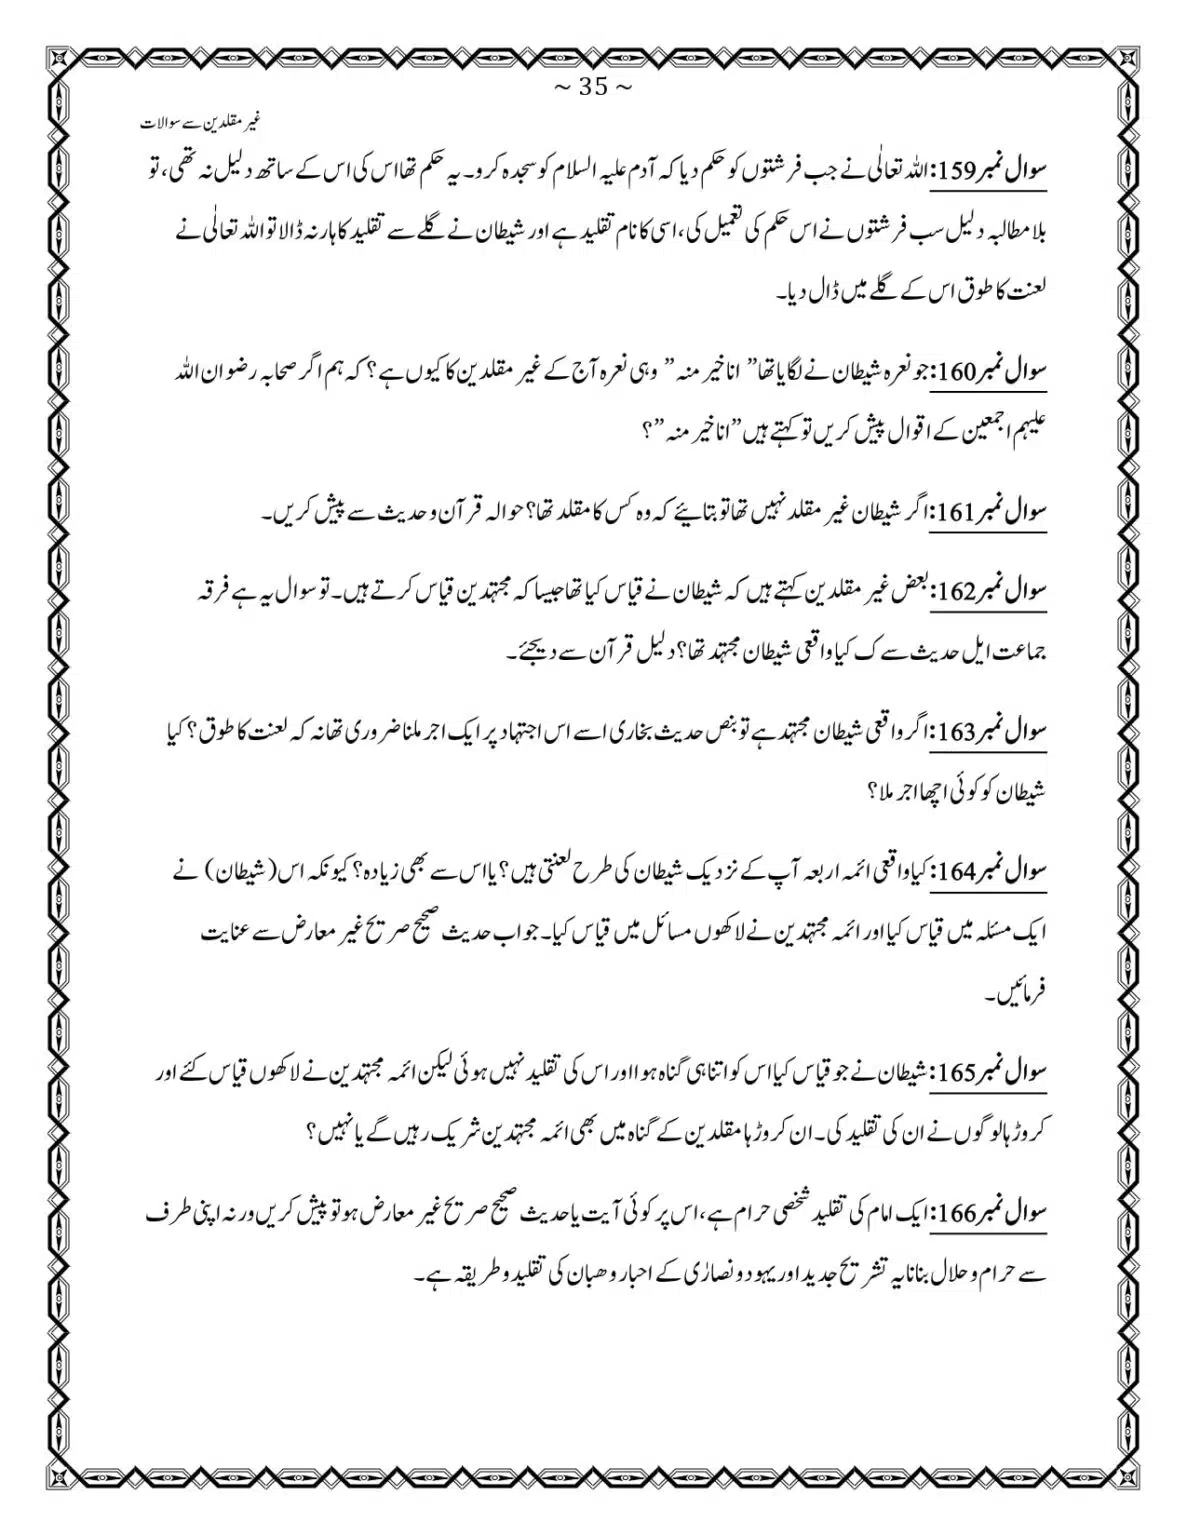 ~ 35 ~
غیر مقلدین سے سوالات
سوال نمبر159: اللہ تعالٰی نے جب فرشتوں کو حکم دیا کہ آدم علیہ السلام کو سجدہ کرو۔ یہ حکم تھا اس کی اس کے ساتھ دلیل نہ تھی، تو
بلا مطالبہ دلیل سب فرشتوں نے اس حکم کی تعمیل کی، اسی کا نام تقلید ہے اور شیطان نے گلے سے تقلید کا ہار نہ ڈالا تو اللہ تعالٰی نے
لعنت کا طوق اس کے گلے میں ڈال دیا۔
سوال نمبر160: جو نعرہ شیطان نے لگایا تھا” انا خیر منہ ” وہی نعرہ آج کے غیر مقلدین کا کیوں ہے؟ کہ ہم اگر صحابہ رضوان اللہ
علیہم اجمعین کے اقوال پیش کریں تو کہتے ہیں ”انا خیر منہ”؟
سوال نمبر161: اگر شیطان غیر مقلد نہیں تھا تو بتایئے کہ وہ کس کا مقلد تھا؟ حوالہ قرآن و حدیث سے پیش کریں۔
سوال نمبر162: بعض غیر مقلدین کہتے ہیں کہ شیطان نے قیاس کیا تھا جیسا کہ مجتہدین قیاس کرتے ہیں۔ تو سوال یہ ہے فرقہ
جماعت ایل حدیث سے ک کیا واقعی شیطان مجتہد تھا؟ دلیل قرآن سے دیجئے۔
سوال نمبر163: اگر واقعی شیطان مجتہد ہے تو بنص حدیث بخاری اسے اس اجتہاد پر ایک اجر ملنا ضروری تھا نہ کہ لعنت کا طوق؟ کیا
شیطان کو کوئی اچھا اجر ملا؟
سوال نمبر164: کیا واقعی ائمہ اربعہ آپ کے نزدیک شیطان کی طرح لعنتی ہیں؟ یا اس سے بھی زیادہ؟ کیونکہ اس (شیطان) نے
ایک مسئلہ میں قیاس کیا اور ائمہ مجتہدین نے لاکھوں مسائل میں قیاس کیا۔ جواب حدیث صحیح صریح غیر معارض سے عنایت
فرمائیں۔
سوال نمبر165: شیطان نے جو قیاس کیا اس کو اتنا ہی گناہ ہوا اور اس کی تقلید نہیں ہوئی لیکن ائمہ مجتہدین نے لاکھوں قیاس کئے اور
کروڑہا لوگوں نے ان کی تقلید کی۔ ان کروڑہا مقلدین کے گناہ میں بھی ائمہ مجتہدین شریک رہیں گے یا نہیں؟
سوال نمبر166: ایک امام کی تقلید شخصی حرام ہے، اس پر کوئی آیت یا حدیث صحیح صریح غیر معارض ہو تو پیش کریں ورنہ اپنی طرف
سے حرام و حلال بنانا یہ تشریح جدید اور یہود و نصارٰی کے احبار و ھبان کی تقلید و طریقہ ہے۔